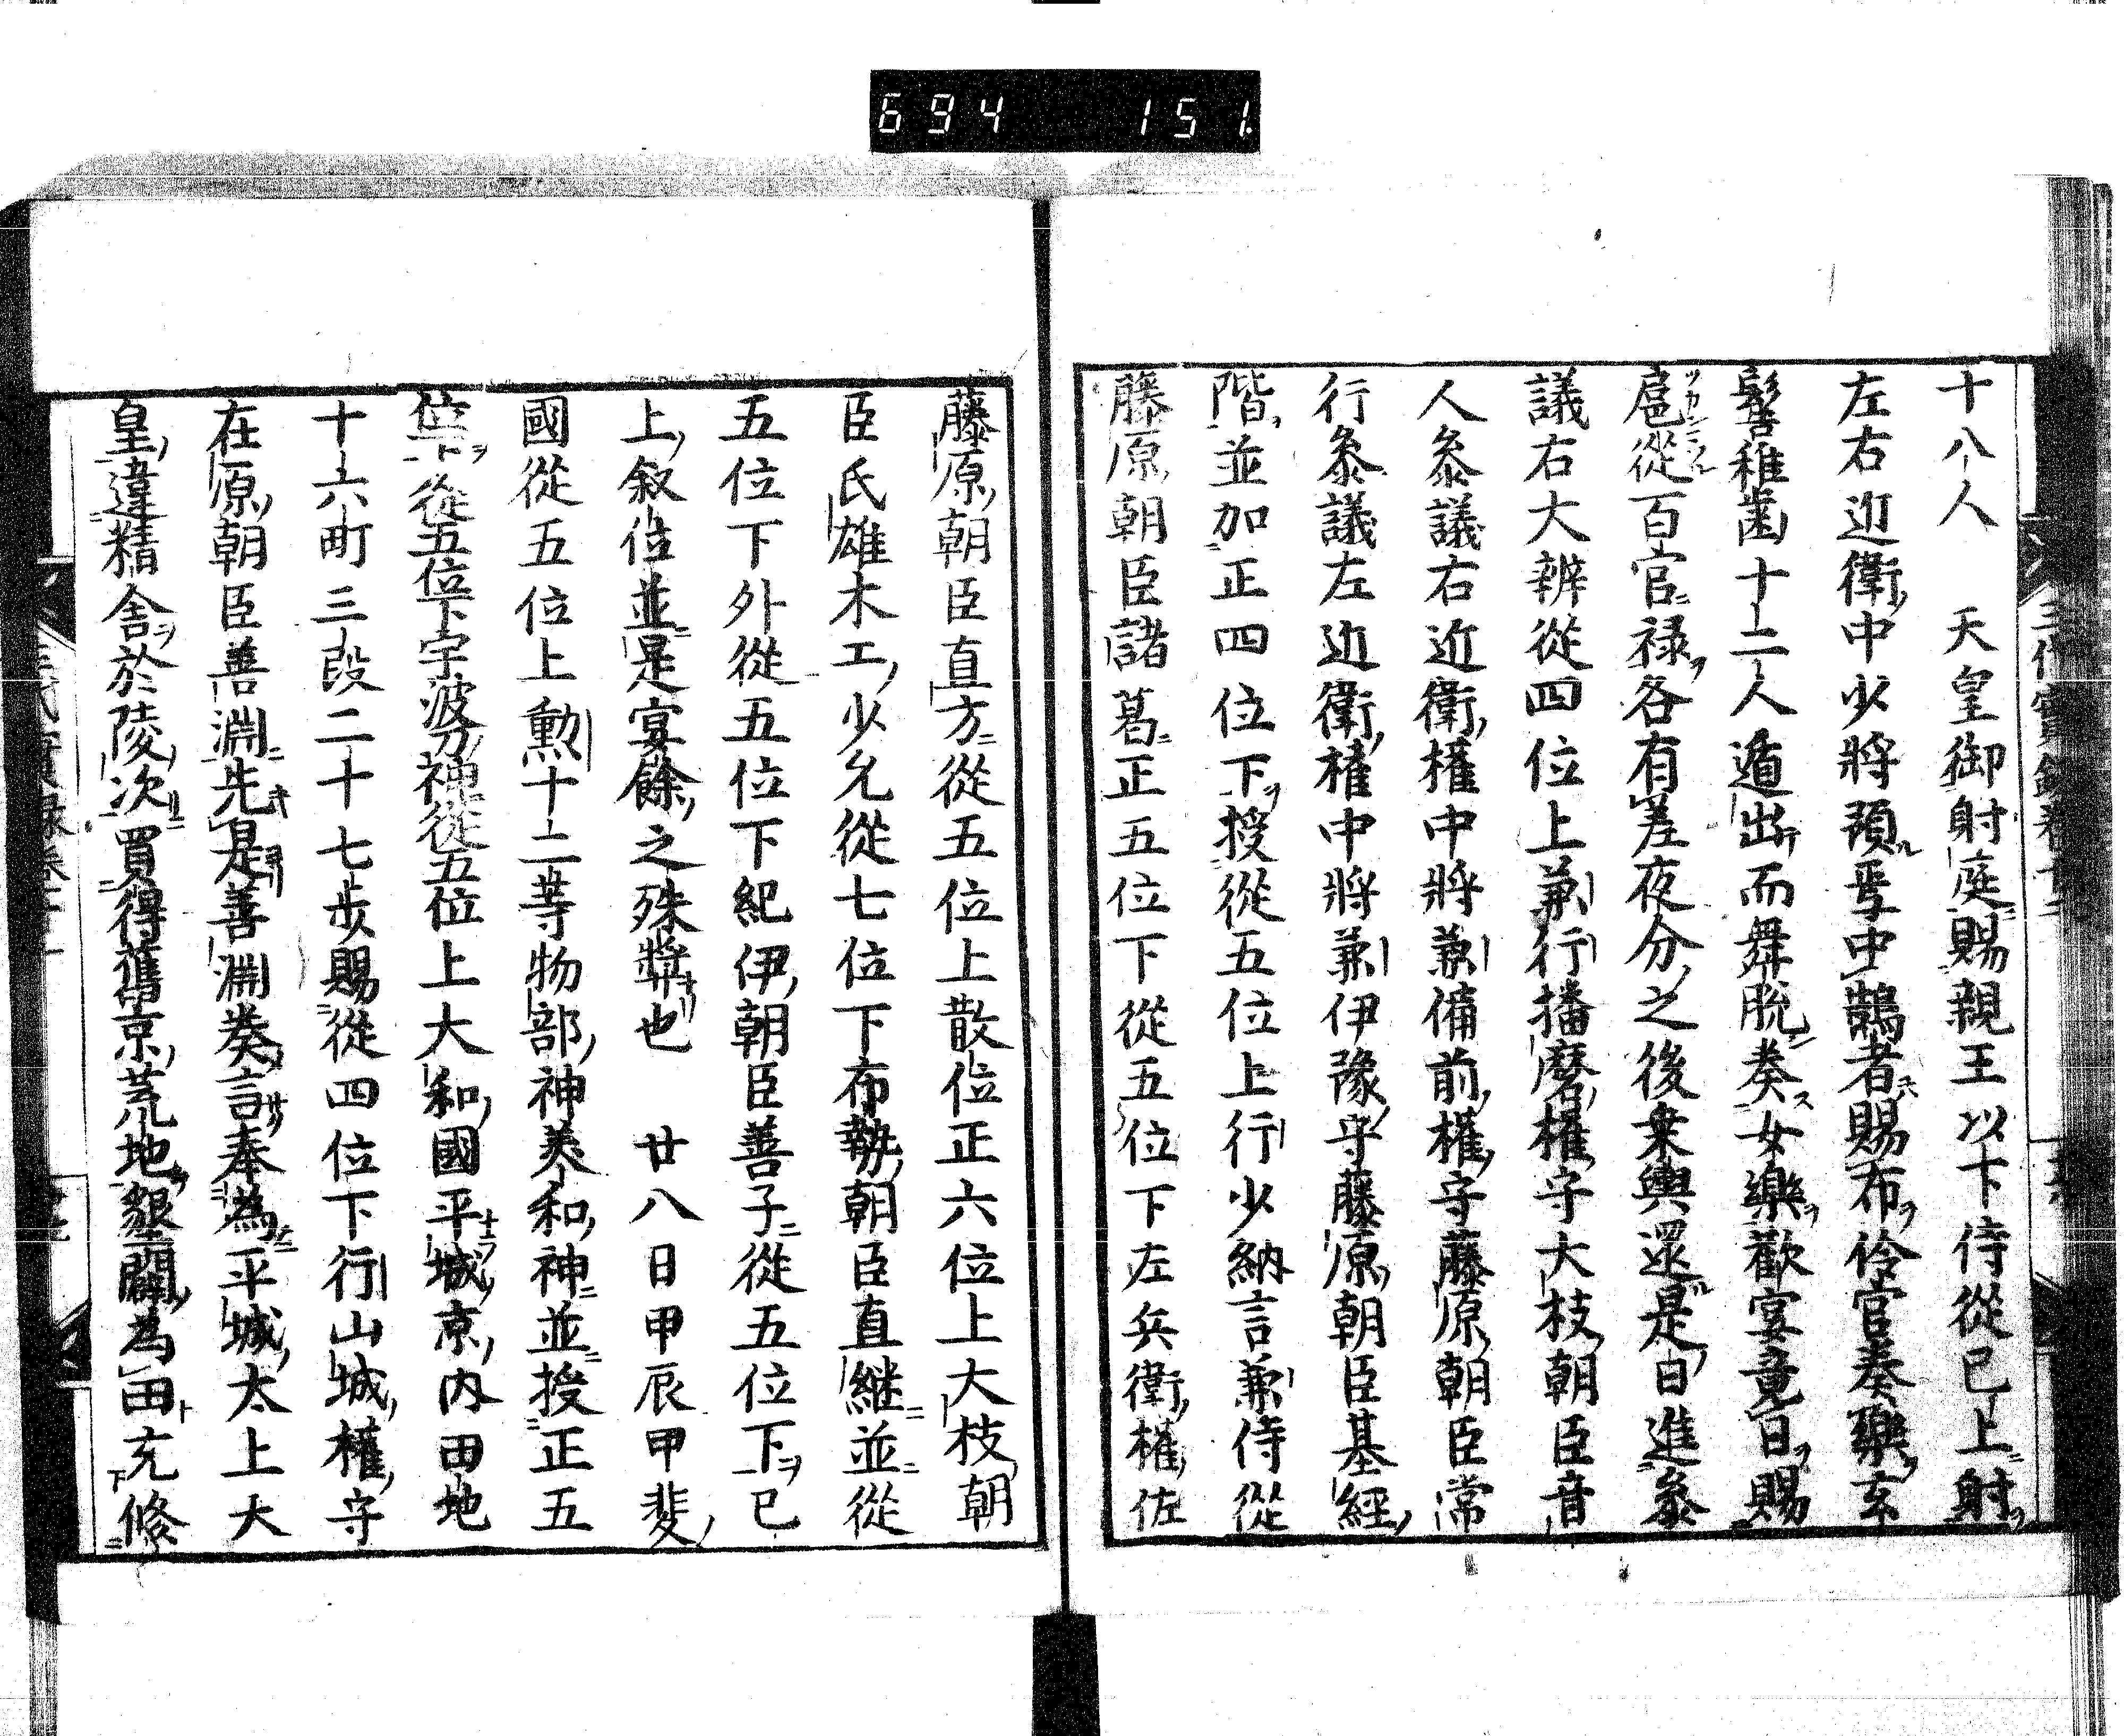 694 151
十八人　天皇御射庭賜親王以下侍從已上射
左右近衛中少將預焉中鵠者賜布伶官奏樂玄
髫稚齒十二人遁出而舞脱奏女樂歡宴竟日賜
扈從百官禄各有差夜分之後乗輿還是日進叅
議右大辨從四位上兼行播磨權守大枝朝臣音
人叅議右近衛權中將兼備前權守藤原朝臣常
行叅議左近衛權中將兼伊豫守藤原朝臣基經
階並加正四位下授從五位上行少納言兼侍從
藤原朝臣諸葛正五位下從五位下左兵衛權佐
藤原朝臣直方從五位上散位正六位上大枝朝
臣氏雄木工少允從七位下布勢朝臣直継並從
五位下外從五位下紀伊朝臣善子從五位下已
上叙位並是宴餘之殊奬也　廿八日甲辰甲斐
國從五位上勲十二等物部神美和神並授正五
位下從五位下宇波刀神從五位上大和國平城京内田地
十六町三段二十七歩賜從四位下行山城權守
在原朝臣善淵先是善淵奏言奉為平城太上大
皇違精舎於陵次買得舊京荒地墾闢為田充修